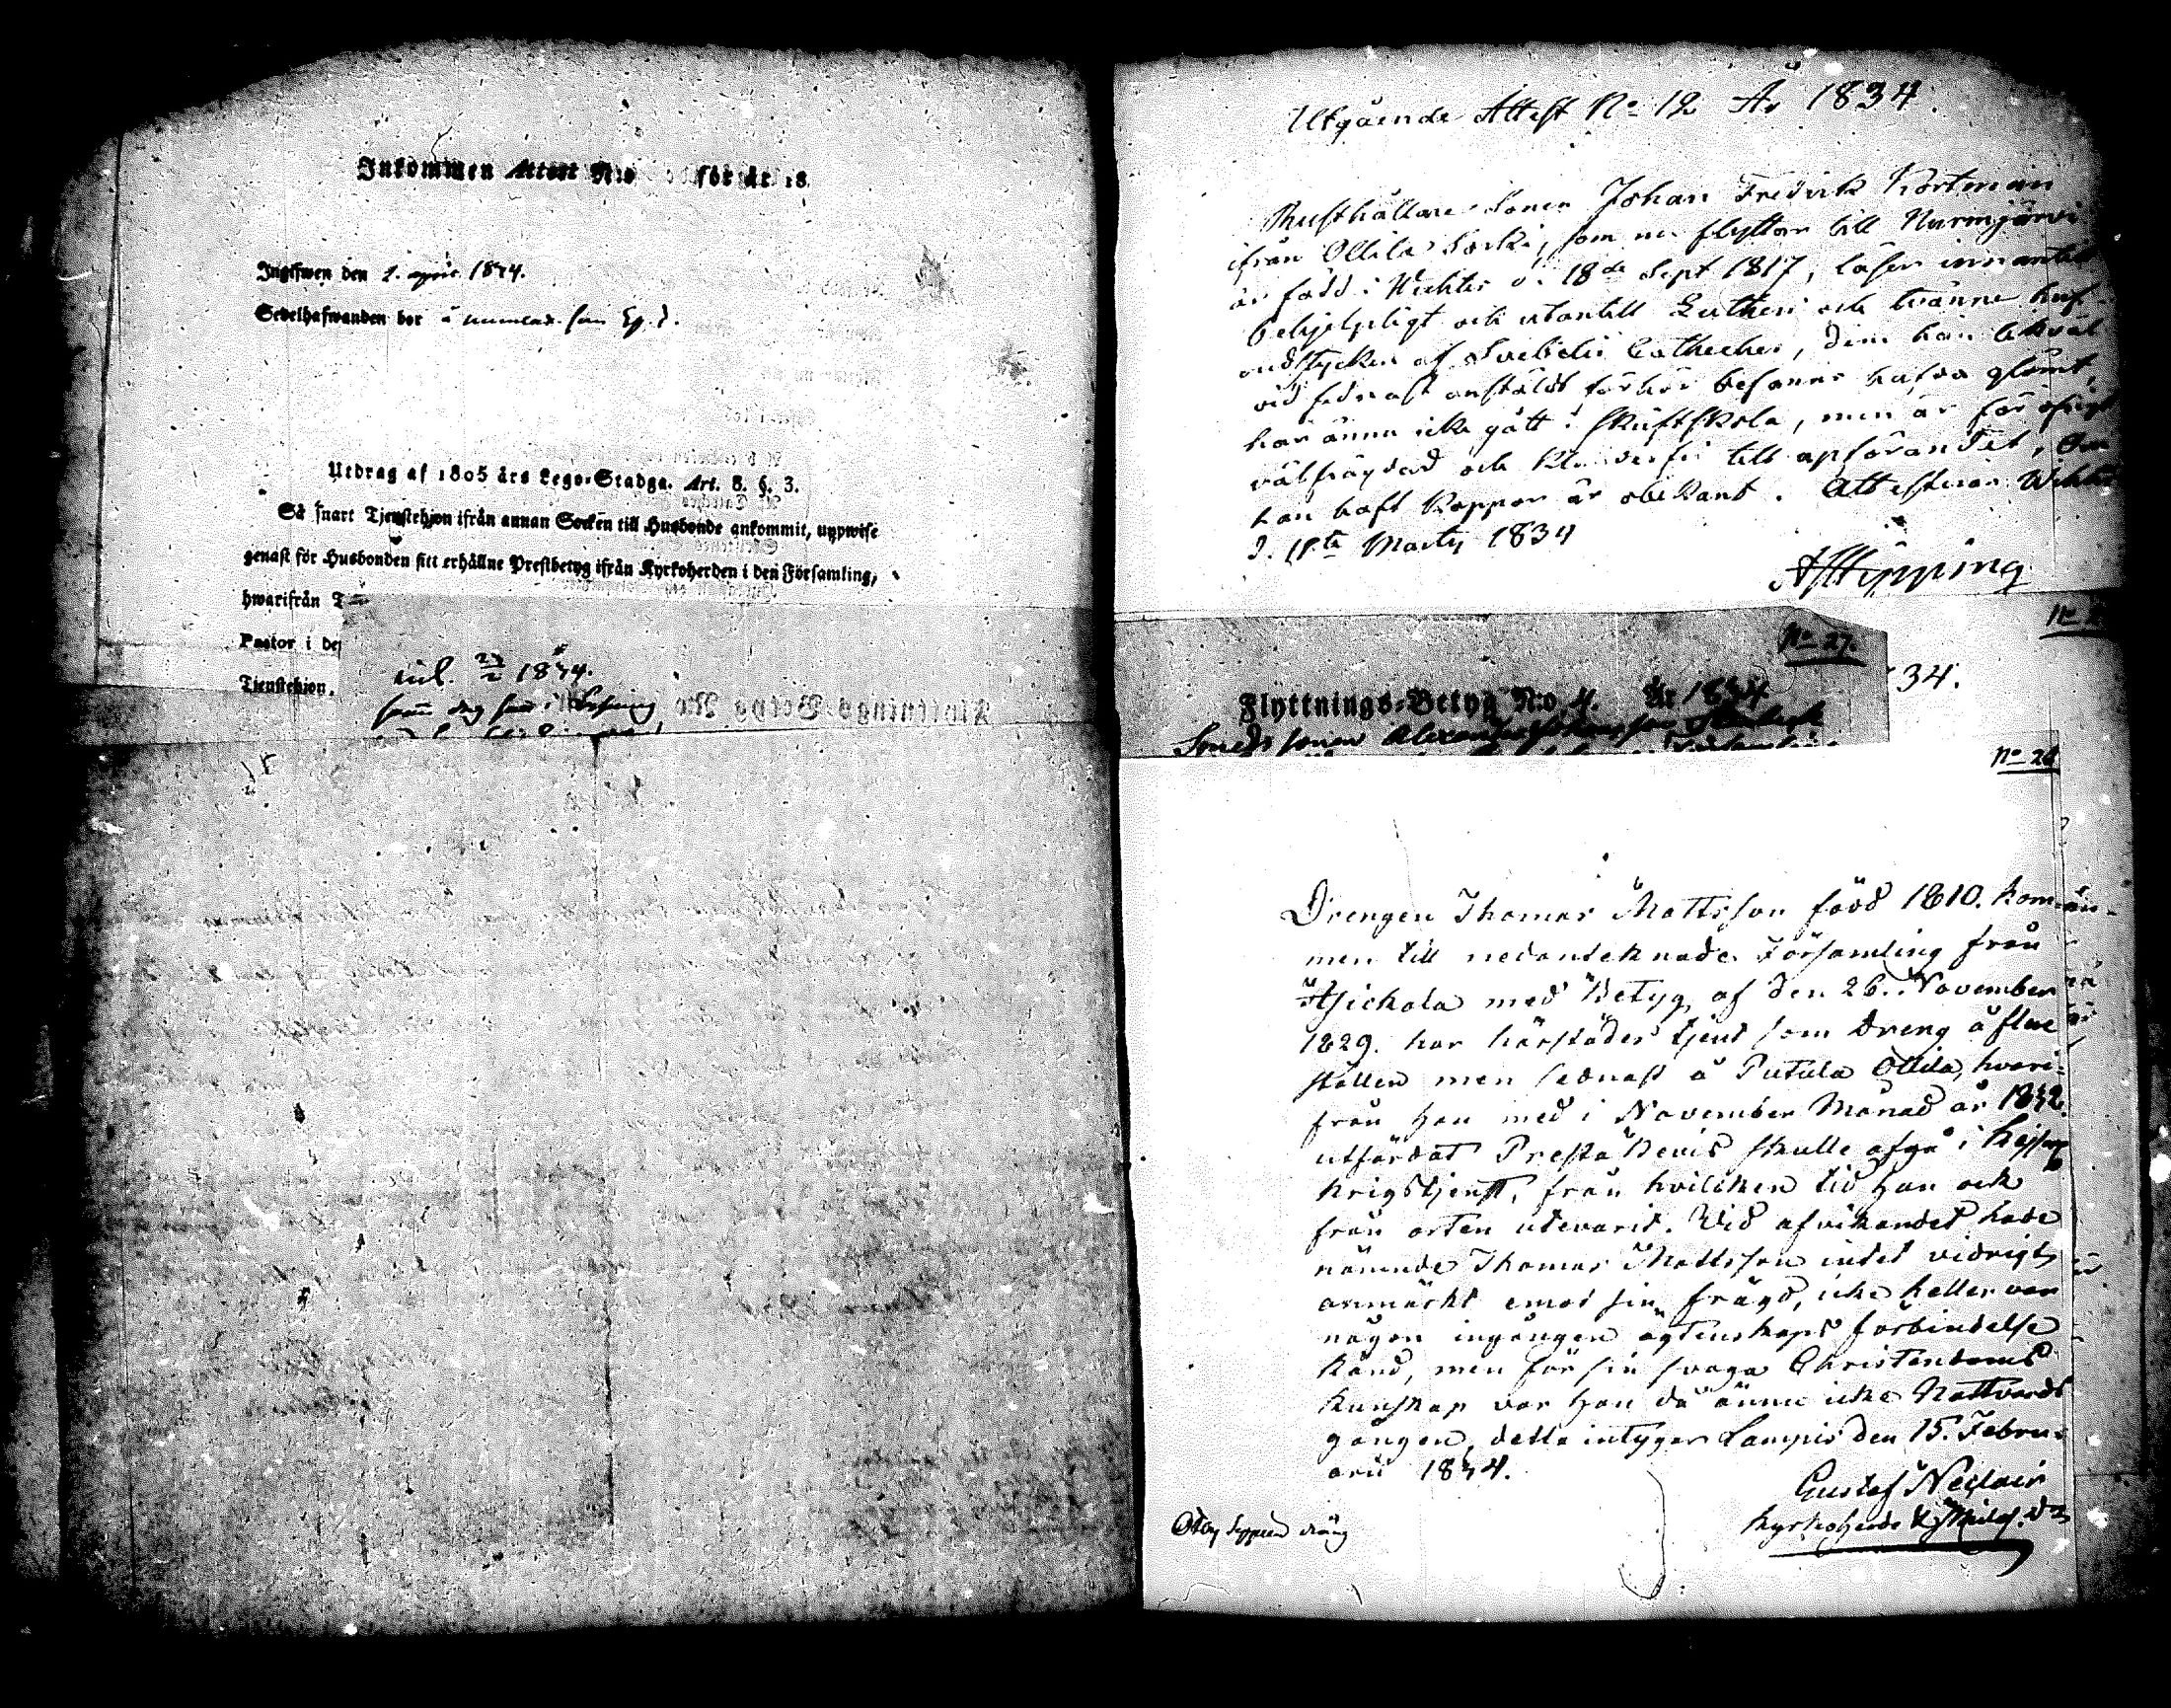 Inkommen Attest N:o för år 18
Ingifwen den 2. april 1834.
Sedelhafwanden bor å
Utdrag af 1805 års Lego-Stadga. Art. 8. §. 3.
Så snart Tjenstehjon ifrån annan Socken till Husbonde ankommit, uppwise
genast för Husbonden sitt erhållne Prestbetyg ifrån Kyrkoherden i den Församling,
hwarifrån
Pastor i
Tjenstehjon.
1834.
Utgående Attest No 12 År 1834.
Rusthållare Sonen Johan Fredrik Kortman
ifrån Ollila Loski, som nu flyttar till Nurmijärvi
är född i Wichtis d. 18de Sept 1817, läser innantill
behjelpligt och utantill Lutheri och tvänne huf-
vudstycken af Svebelii Catheches, dem han likväl
vid sednast anstäldt förhör befanns hafva glömt,
har ännu icke gått i Skriftskola, men är för öfrigt
välfrägdad och klanderfri till uppförandet, Om
han haft koppor är obekant. Attesterar Wichtis
d. Marty 1834
No 27.
Flyttnings-Betyg N:o 4. År 1834
34.
No 28
Drengen Thomas Mattsson född 1810. kom-
men till nedanteknade Församling från
Hjickala med Betyg af den 26. November
1829. har härstädes tjent som dreng å flere
ställen men sednast å Putula Ollila, hvari-
från Han med i November Månad år 1832.
utfärdat Presta Bevis skulle afgå i Kejserl
krigstjenst, från hvilcken tid Han ock
från orten utevarit. Wid afvikandet hade
nämnde Thomas Mattsson intet vidrigt
anmärkt emot sin frägd, icke heller var
någon ingången ägtenskaps förbindelse
känd, men för sin svaga Christendoms
kunskap var Han då ännu icke Nattvards
gången, detta intygar Lampis den 15. Febru-
arii 1834.
Gustaf
Kyrkoherde